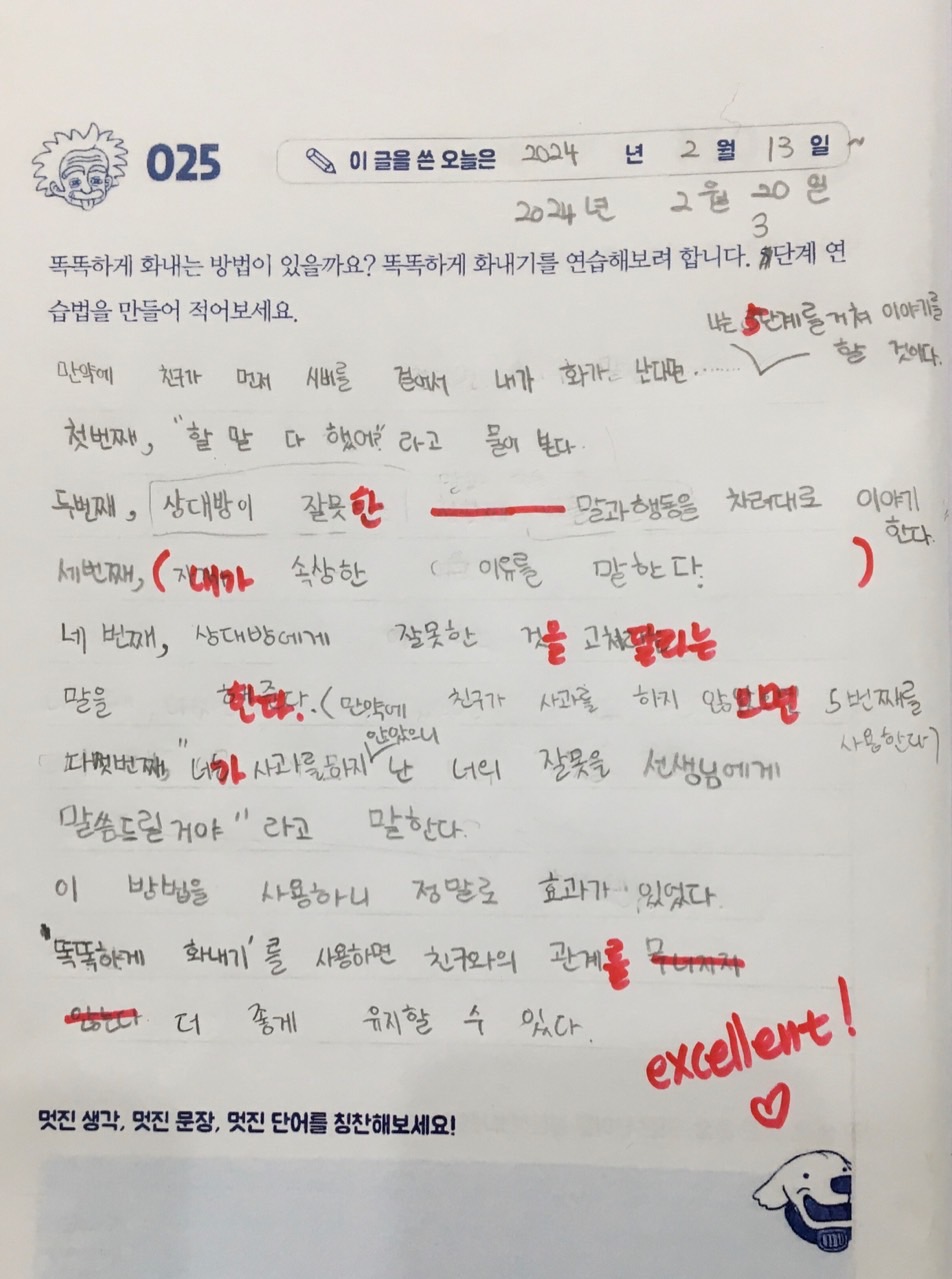 025
이 글을 쓴 오늘은 2024 년 2 월 13 일 ~
2024년 2월 20일
3
똑똑하게 화내는 방법이 있을까요? 똑똑하게 화내기를 연습해보려 합니다. 단계 연
습법을 만들어 적어보세요.
나는 5단계를 거쳐 이야기를
할 것이다.
만약에 친구가 먼저 시비를 걸어서 내가 화가 난다면......
첫번째, "할 말 다 했어?" 라고 물어 본다.
두번째, 상대방이 잘못한 말과 행동을 차려대로 이야기
한다.
세번째, ( 내가 속상한 이유를 말한다. )
네 번째, 상대방에게 잘못한 것을 고쳐달라는
말을 한다. (만약에 친구가 사과를 하지 않으면 5번째를
사용한다)
안았으니
다섯번째, "너가 사과를 하지 난 너의 잘못을 선생님에게
말씀드릴거야" 라고 말한다.
이 방법을 사용하니 정말로 효과가 있었다.
'똑똑하게 화내기'를 사용하면 친구와의 관계를 무너지지
않는다 더 좋게 유지할 수 있다.
excellent!
멋진 생각, 멋진 문장, 멋진 단어를 칭찬해보세요!